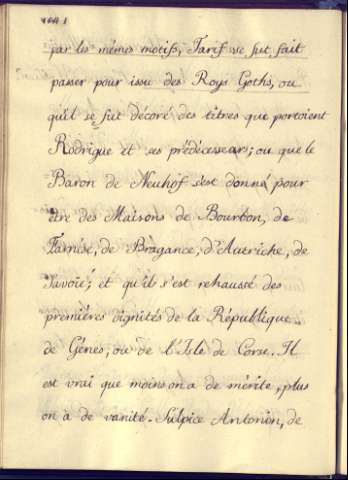 par les mêmes motifs, Tarif se fut fait
passer pour issu des Roys Goths, ou
qu'il se fut décoré des titres que portoient
Rodrigue et ses prédécesseurs; ou que le
Baron de Neuhof s'est donné pour
être des Maisons de Bourbon, de
Farnèse, de Bragance, d'Autriche, de
Savoie, et qu'il s'est rehaussé des
premières dignités de la République
de Gênes, ou de l'Isle de Corse. Il
est vrai que moins on a de mérite, plus
on à de vanité. Sulpice Antonin, de